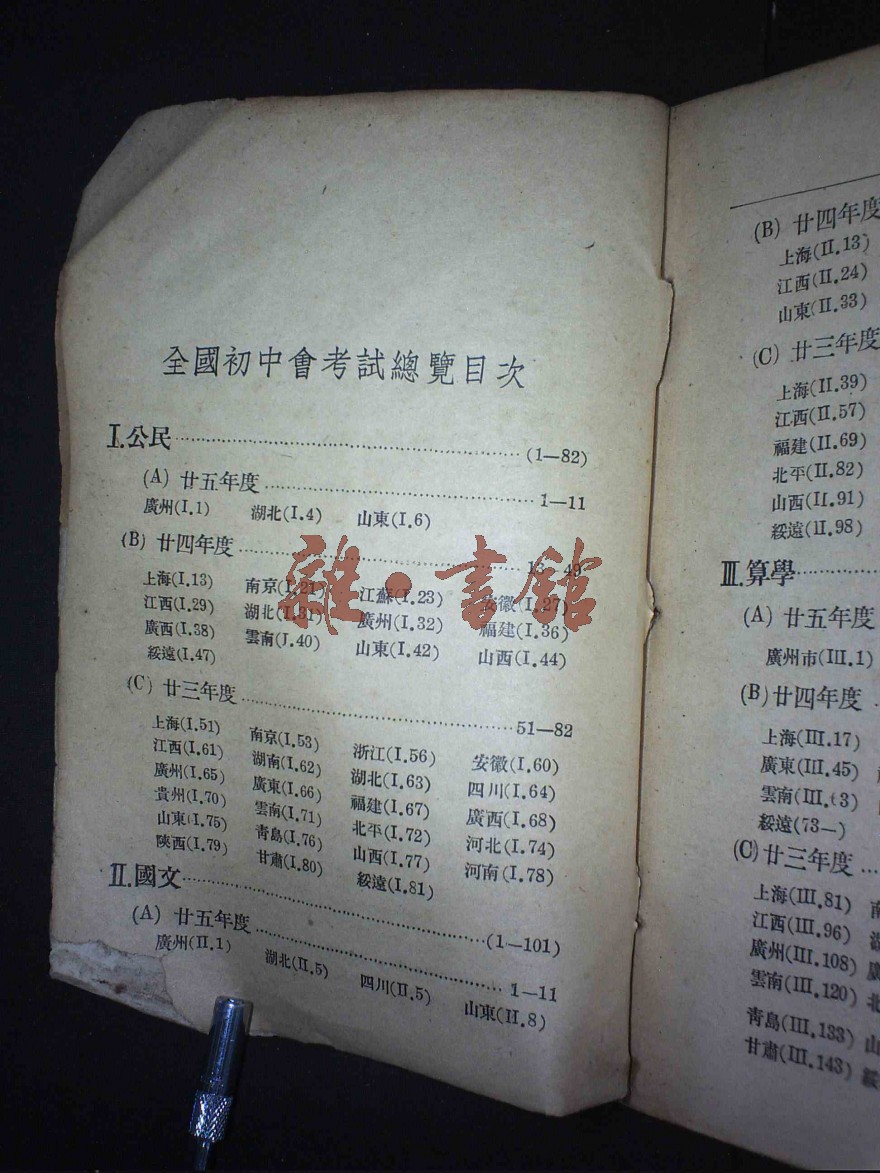 全國初中會考試總覽目次
I.公民……(1—82)
(A) 廿五年度……1—11
廣州(I.1) 湖北(I.4) 山東(I.6)
(B) 廿四年度……13—49
上海(I.13) 南京(I.21) 江蘇(I.23) 安徽(I.27)
江西(I.29) 湖北(I.31) 廣州(I.32) 福建(I.36)
廣西(I.38) 雲南(I.40) 山東(I.42) 山西(I.44)
綏遠(I.47)
(C) 廿三年度……51—82
上海(I.51) 南京(I.53) 浙江(I.56) 安徽(I.60)
江西(I.61) 湖南(I.62) 湖北(I.63) 四川(I.64)
廣州(I.65) 廣東(I.66) 福建(I.67) 廣西(I.68)
貴州(I.70) 雲南(I.71) 北平(I.72) 河北(I.74)
山東(I.75) 青島(I.76) 山西(I.77) 河南(I.78)
陝西(I.79) 甘肅(I.80) 綏遠(I.81)
II.國文……(1—101)
(A) 廿五年度……1—11
廣州(II.1) 湖北(II.5) 四川(II.5) 山東(II.8)
雜·書館
(B) 廿四年度
上海(II.13)
江西(II.24)
山東(II.33)
(C) 廿三年度
上海(II.39)
江西(II.57)
福建(II.69)
北平(II.82)
山西(II.91)
綏遠(II.98)
III.算學……
(A) 廿五年度
廣州市(III.1)
(B)廿四年度
上海(III.17)
廣東(III.45)
雲南(III.63)
綏遠(73—)
(C)廿三年度…
上海(III.81)
江西(III.96)
廣州(III.108)
雲南(III.120) 北
青島(III.133) 山
甘肅(III.143) 綏